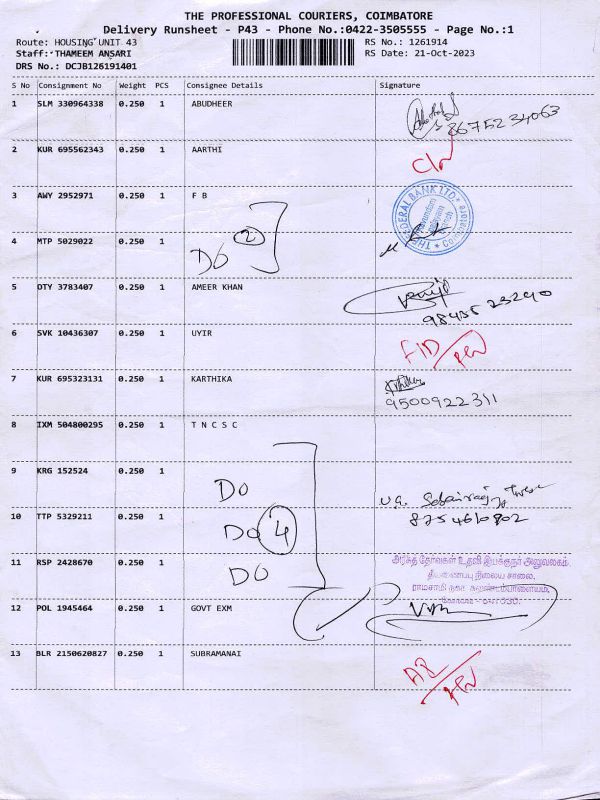 THE PROFESSIONAL COURIERS, COIMBATORE
Delivery Runsheet - P43 - Phone No.:0422-3505555 - Page No.:1
Route: HOUSING UNIT 43 RS No.: 1261914
Staff: THAMEEM ANSARI RS Date: 21-Oct-2023
DRS No.: DCJB126191401
S No Consignment No Weight PCS Consignee Details Signature
1 SLM 330964338 0.250 1 ABUDHEER
8675234063
2 KUR 695562343 0.250 1 AARTHI
3 AWY 2952971 0.250 1 F B
THE FEDERAL BANK LTD. * Coimbatore *
4 MTP 5029022 0.250 1
Do 2
5 DTY 3783407 0.250 1 AMEER KHAN
9843523290
6 SVK 10436307 0.250 1 UYIR
7 KUR 695323131 0.250 1 KARTHIKA
9500922311
8 IXM 504800295 0.250 1 T N C S C
9 KRG 152524 0.250 1
Do
10 TTP 5329211 0.250 1
8754610802
Do 4
11 RSP 2428670 0.250 1
Do
அரசுத் தேர்வுகள் உதவி இயக்குநர் அலுவலகம்,
தீயணைப்பு நிலைய சாலை,
12 POL 1945464 0.250 1 GOVT EXM
13 BLR 2150620827 0.250 1 SUBRAMANAI